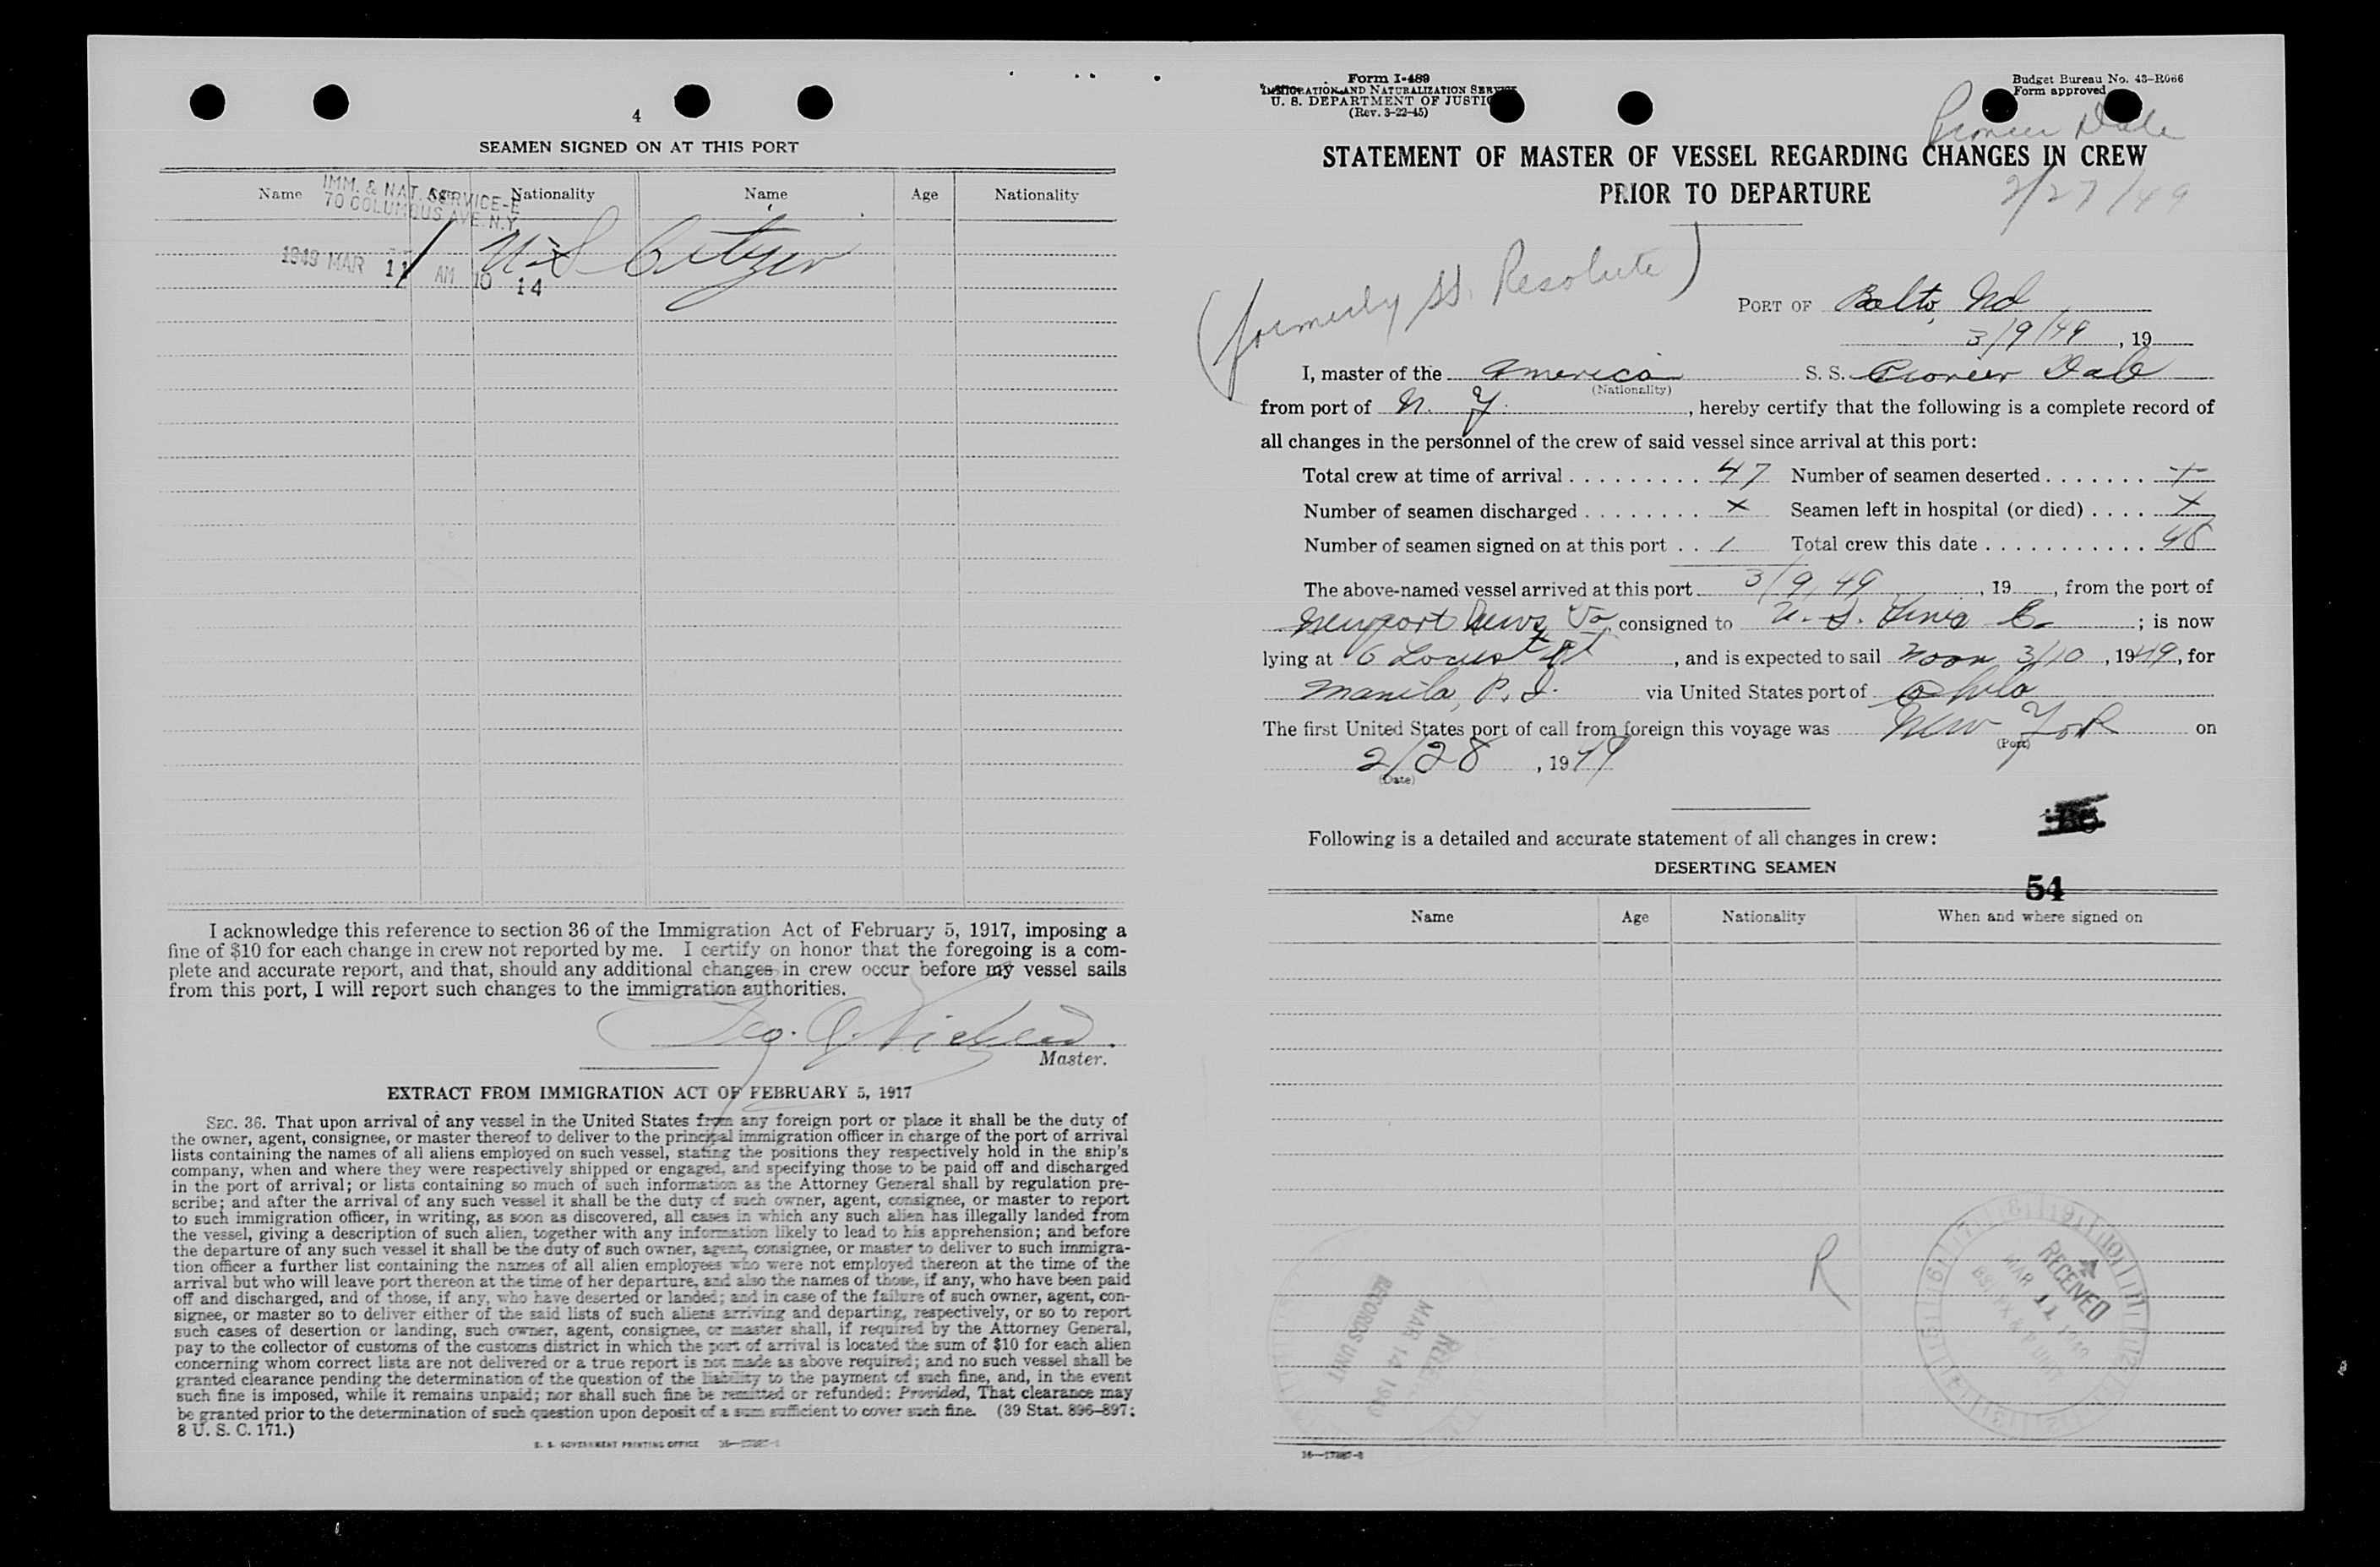 4
SEAMEN SIGNED ON AT THIS PORT
Name Age Nationality Name Age Nationality
IMM. & NAT. SERVICE-E
70 COLUMBUS AVE. N.Y.
1949 MAR 11 AM 10 14
1 U.S Citizen
I acknowledge this reference to section 36 of the Immigration Act of February 5, 1917, imposing a
fine of $10 for each change in crew not reported by me. I certify on honor that the foregoing is a com-
plete and accurate report, and that, should any additional changes in crew occur before my vessel sails
from this port, I will report such changes to the immigration authorities.
Geo. J.
Master.
EXTRACT FROM IMMIGRATION ACT OF FEBRUARY 5, 1917
SEC. 36. That upon arrival of any vessel in the United States from any foreign port or place it shall be the duty of
the owner, agent, consignee, or master thereof to deliver to the principal immigration officer in charge of the port of arrival
lists containing the names of all aliens employed on such vessel, stating the positions they respectively hold in the ship's
company, when and where they were respectively shipped or engaged, and specifying those to be paid off and discharged
in the port of arrival; or lists containing so much of such information as the Attorney General shall by regulation pre-
scribe; and after the arrival of any such vessel it shall be the duty of such owner, agent, consignee, or master to report
to such immigration officer, in writing, as soon as discovered, all cases in which any such alien has illegally landed from
the vessel, giving a description of such alien, together with any information likely to lead to his apprehension; and before
the departure of any such vessel it shall be the duty of such owner, agent, consignee, or master to deliver to such immigra-
tion officer a further list containing the names of all alien employees who were not employed thereon at the time of the
arrival but who will leave port thereon at the time of her departure, and also the names of those, if any, who have been paid
off and discharged, and of those, if any, who have deserted or landed; and in case of the failure of such owner, agent, con-
signee, or master so to deliver either of the said lists of such aliens arriving and departing, respectively, or so to report
such cases of desertion or landing, such owner, agent, consignee, or master shall, if required by the Attorney General,
pay to the collector of customs of the customs district in which the port of arrival is located the sum of $10 for each alien
concerning whom correct lists are not delivered or a true report is not made as above required; and no such vessel shall be
granted clearance pending the determination of the question of the liability to the payment of such fine, and, in the event
such fine is imposed, while it remains unpaid; nor shall such fine be remitted or refunded: Provided, That clearance may
be granted prior to the determination of such question upon deposit of a sum sufficient to cover such fine. (39 Stat. 896-897;
8 U. S. C. 171.)
U. S. GOVERNMENT PRINTING OFFICE 16—17987-1
Form I-489
IMMIGRATION AND NATURALIZATION SERVICE
U. S. DEPARTMENT OF JUSTICE
(Rev. 3-22-45)
Budget Bureau No. 43-R066
Form approved
Pioneer Dale
STATEMENT OF MASTER OF VESSEL REGARDING CHANGES IN CREW
PRIOR TO DEPARTURE
2/27/49
(formerly SS. Resolute)
PORT OF Balto, Md
3/9/49, 19
I, master of the America S. S. Pioneer Dale
(Nationality)
from port of N. Y., hereby certify that the following is a complete record of
all changes in the personnel of the crew of said vessel since arrival at this port:
Total crew at time of arrival 47 Number of seamen deserted X
Number of seamen discharged X Seamen left in hospital (or died) X
Number of seamen signed on at this port 1 Total crew this date 48
The above-named vessel arrived at this port 3/9/49, 19, from the port of
Newport News Va, consigned to U. S. Lines Co; is now
lying at 6 Locust Pt, and is expected to sail noon 3/10, 1949, for
Manila, P. I. via United States port of Phila
The first United States port of call from foreign this voyage was New York on
(Port)
2/28, 1949
(Date)
Following is a detailed and accurate statement of all changes in crew:
DESERTING SEAMEN
54
Name Age Nationality When and where signed on
R
RECEIVED
MAR 11
RECORDS UNIT
MAR 14